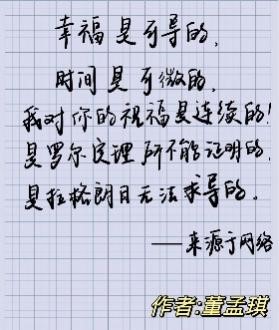 幸福是可导的，
时间是可微的，
我对你的祝福是连续的！
是罗尔定理所不能证明的，
是拉格朗日无法求导的。
——来源于网络
作者:董孟琪